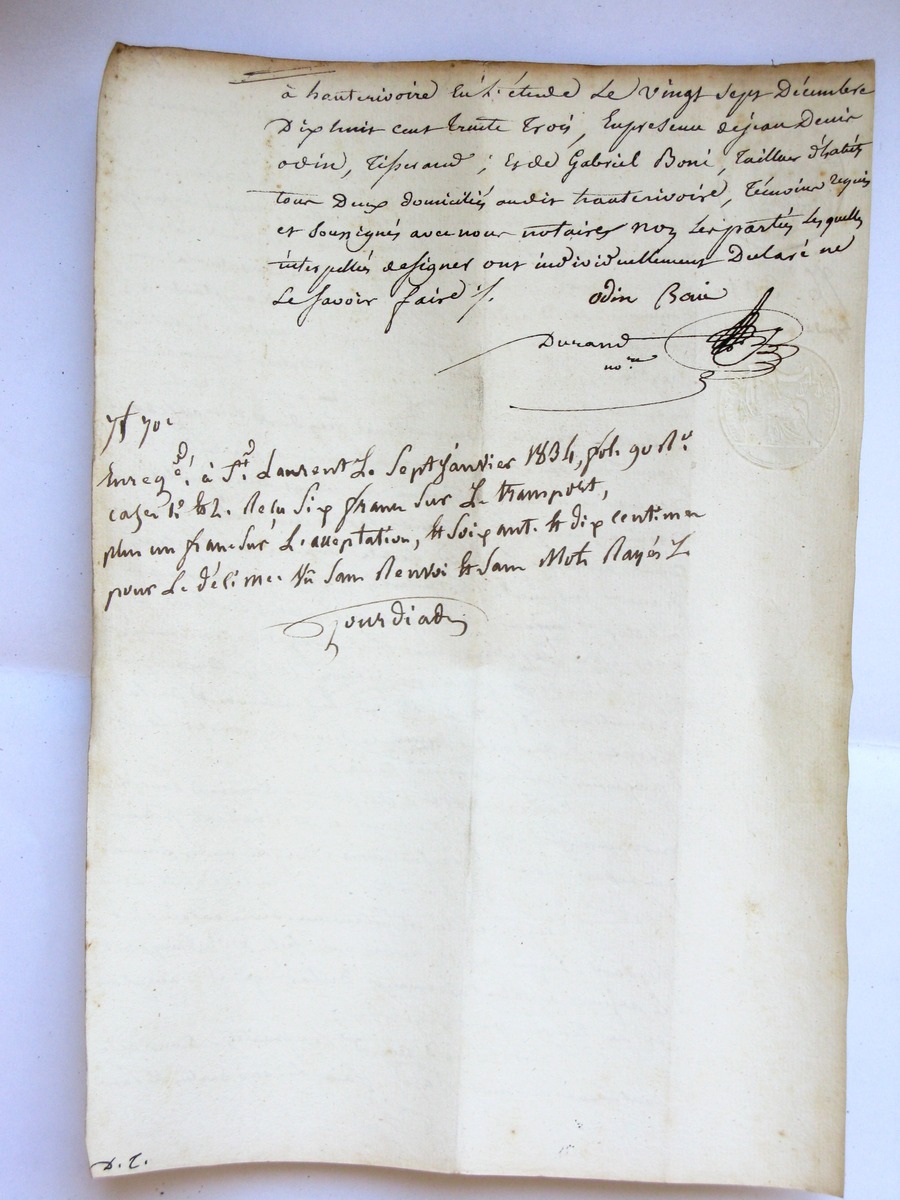 à hauterivoire En L'étude Le Vingt Sept Décembre
Dix huit cent trente trois, En presence de jean Denis
odin, Tisserand ; Et de Gabriel Boni, Tailleur d'habits
tous Deux domiciliés audit hauterivoire, Témoins requis
et Soussignés avec nous notaires non Les parties Lesquelles
interpellés de signer ont individuellement Declaré ne
Le Savoir faire ./.
odin Boni
Durand
nore
7f 70c
Enregé. à St. Laurent Le Sept Janvier 1834, fol. 90 Ro.
cases 1e. & 2. Reçu Six francs Sur Le transport,
plus un franc Sur L'acceptation, et Soixante et dix centimes
pour Le décime. Sans Renvoi et Sans Mots Rayés
Jourdiad
D. T.